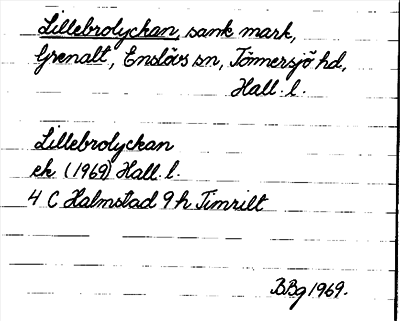 Lillebrolyckan, sank mark,
Grenalt, Enslövs sn, Tönnersjö hd,
Hall. l.
Lillebrolyckan
ek (1969) Hall. l.
4 C Halmstad 9 h Timrilt
BBg 1969.